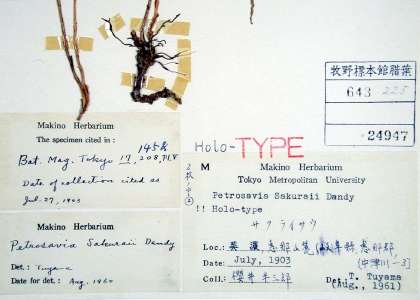 牧野標本館腊葉
643 225
24947
Holo-TYPE
Makino Herbarium
The specimen cited in :
Bot. Mag. Tokyo 17, 208,
Date of collection cited as
Jul. 27, 1903
Petrosavia Sakuraii Dandy
Det.:
Date for det.: Aug. 1960
M Makino Herbarium
Tokyo Metropolitan University
Petrosavia Sakuraii Dandy
!! Holo-type
サクライサウ
Loc.: 美濃 恵那
Date: July, 1903
Coll.: 櫻井半三郎
Det.: T. Tuyama
(Aug., 1961)